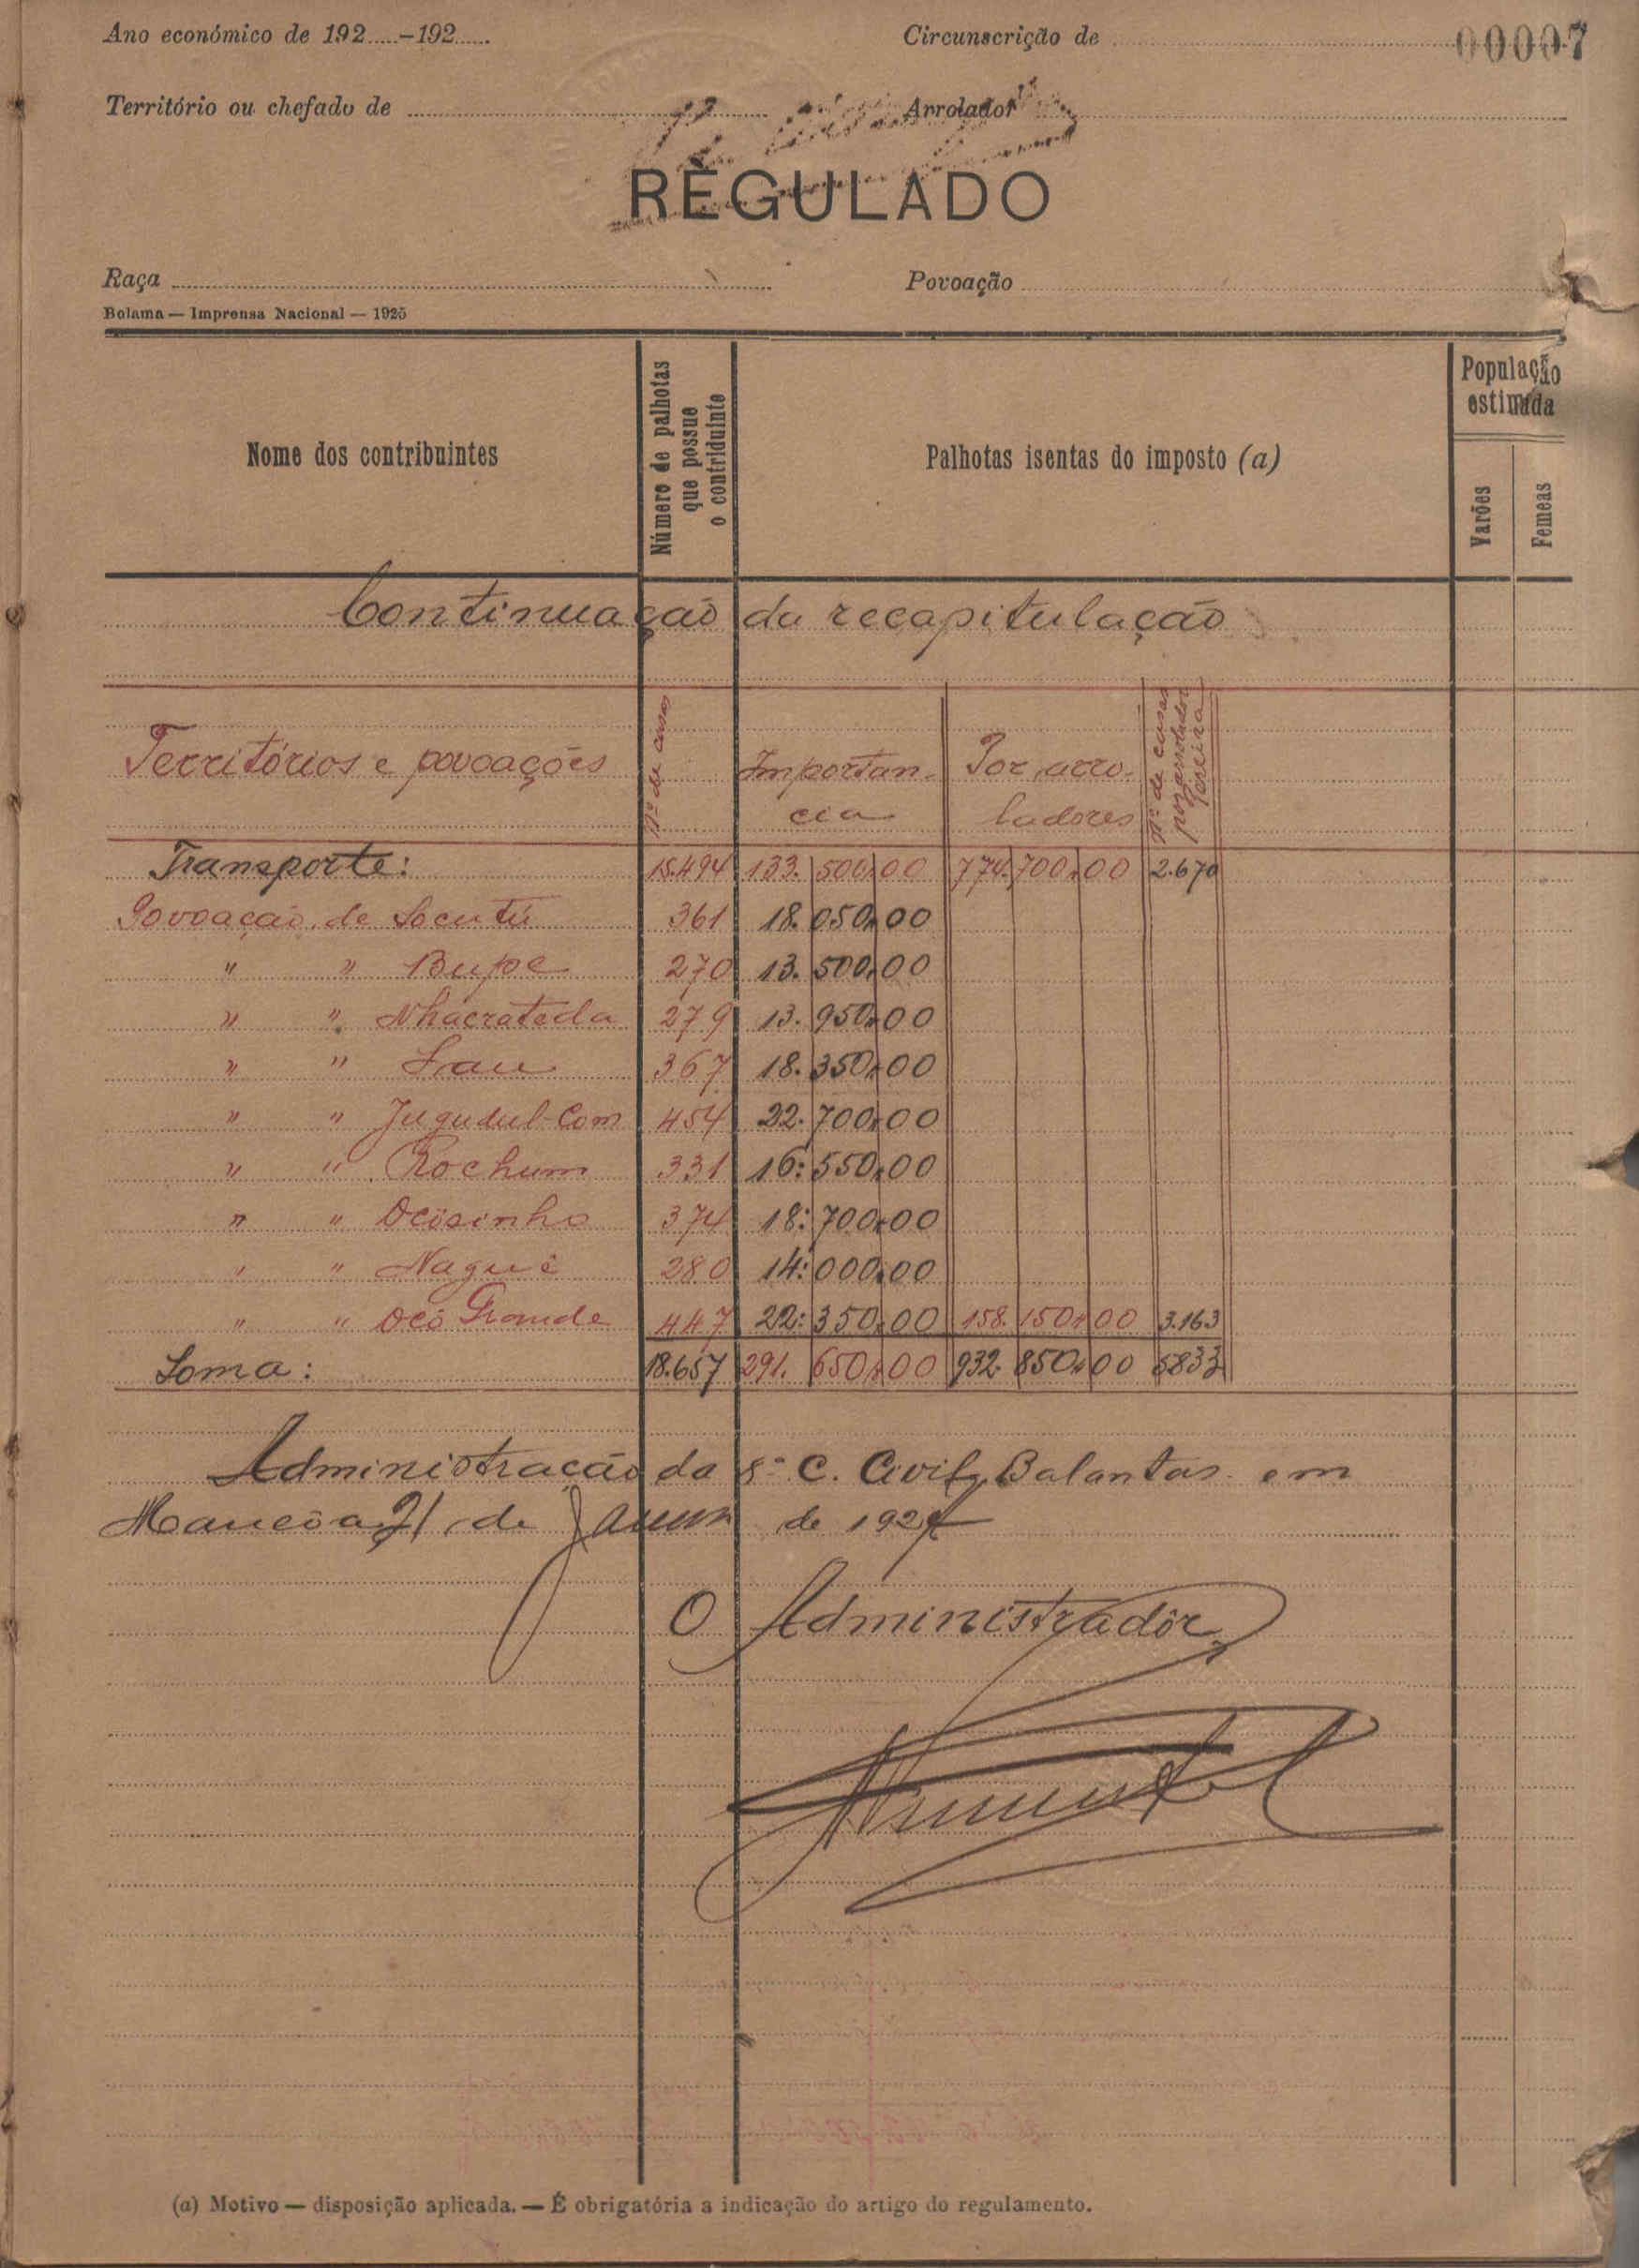 Ano económico de 192.....-192......
Circunscrição de
00007
Território ou chefado de
Arrolador
REGULADO
Raça
Povoação
Bolama — Imprensa Nacional — 1925
Nome dos contribuintes
Número de palhotas que possue o contriduinte
Palhotas isentas do imposto (a)
População estimada
Varões
Femeas
Continuação da recapitulação
Territórios e povoações
Nº de casas
Importancia
Por arroladores
Nº de casas por arroladores
Transporte: 15.494 133. 500,00 774.700,00 2.670
Povoação de Locutú 361 18.050,00
" " Bupe 270 13.500,00
" " Nhacrateda 279 13.950,00
" " Lau 367 18.350,00
" " Jugudul-Com 454 22.700,00
" " Rochum 331 16:550,00
" " Ocósinho 374 18:700,00
" " Nagué 280 14:000,00
" " Ocó Grande 447 22:350,00 158.150,00 3.163
Soma: 18.657 291. 650,00 932.850,00 5833
Administração da 8ª C. Civil, Balantas em
Mancôa, 21 de de 1927
O Administradôr
(a) Motivo — disposição aplicada. — É obrigatória a indicação do artigo do regulamento.